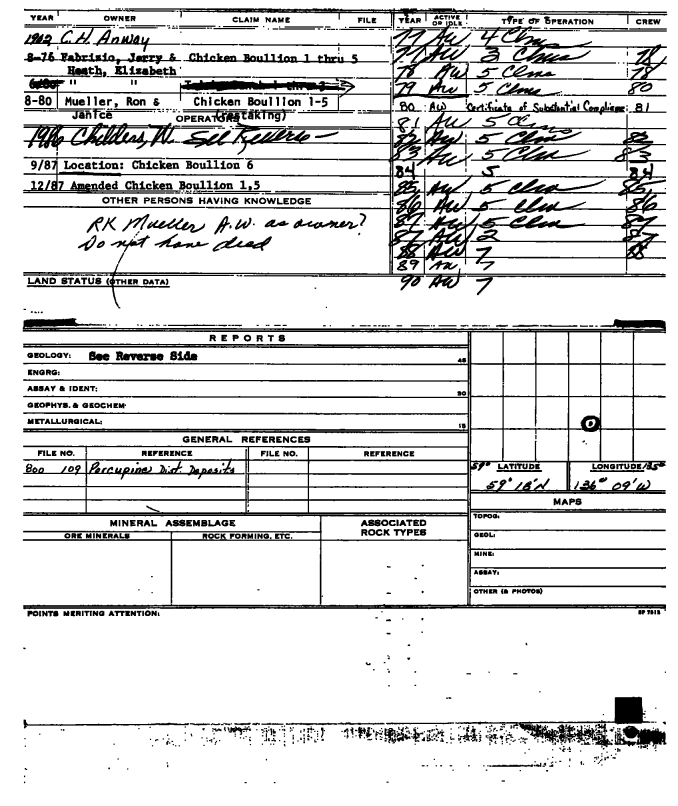 YEAR OWNER CLAIM NAME FILE YEAR ACTIVE OR IDLE TYPE OF OPERATION CREW
1902 C.H. Anway
8-76 Fabrizio, Jerry & Chicken Boullion 1 thru 5
Heath, Elizabeth
" "
8-80 Mueller, Ron & Chicken Boullion 1-5
Janice (restaking)
OPERATORS
1986 Childers, W. See Reverse —
9/87 Location: Chicken Boullion 6
12/87 Amended Chicken Boullion 1,5
OTHER PERSONS HAVING KNOWLEDGE
RK Mueller A.W. as owner?
Do not have deed
LAND STATUS (OTHER DATA)
77 AW 4 Clms
77 AW 3 Clms 78
78 AW 5 Clms 78
79 AW 5 Clms 80
80 AW Certificate of Substantial Compliance 81
81 AW 5 Clms
82 AW 5 Clms 83
83 AW 5 Clm 83
84 5 84
85 AW 5 Clms 85
86 AW 5 Clms 86
87 AW 5 Clms 87
87 AW 2 87
88 AW 7 88
89 AW 7
90 AW 7
REPORTS
GEOLOGY: See Reverse Side 45
ENGRG:
ASSAY & IDENT: 30
GEOPHYS. & GEOCHEM:
METALLURGICAL: 15
GENERAL REFERENCES
FILE NO. REFERENCE FILE NO. REFERENCE
800 109 Porcupine Dist. Deposits
59° LATITUDE LONGITUDE 135°
59° 18'N 136° 09'W
MAPS
TOPOG:
GEOL:
MINE:
ASSAY:
OTHER (& PHOTOS)
MINERAL ASSEMBLAGE ASSOCIATED ROCK TYPES
ORE MINERALS ROCK FORMING, ETC.
POINTS MERITING ATTENTION: SP 7513